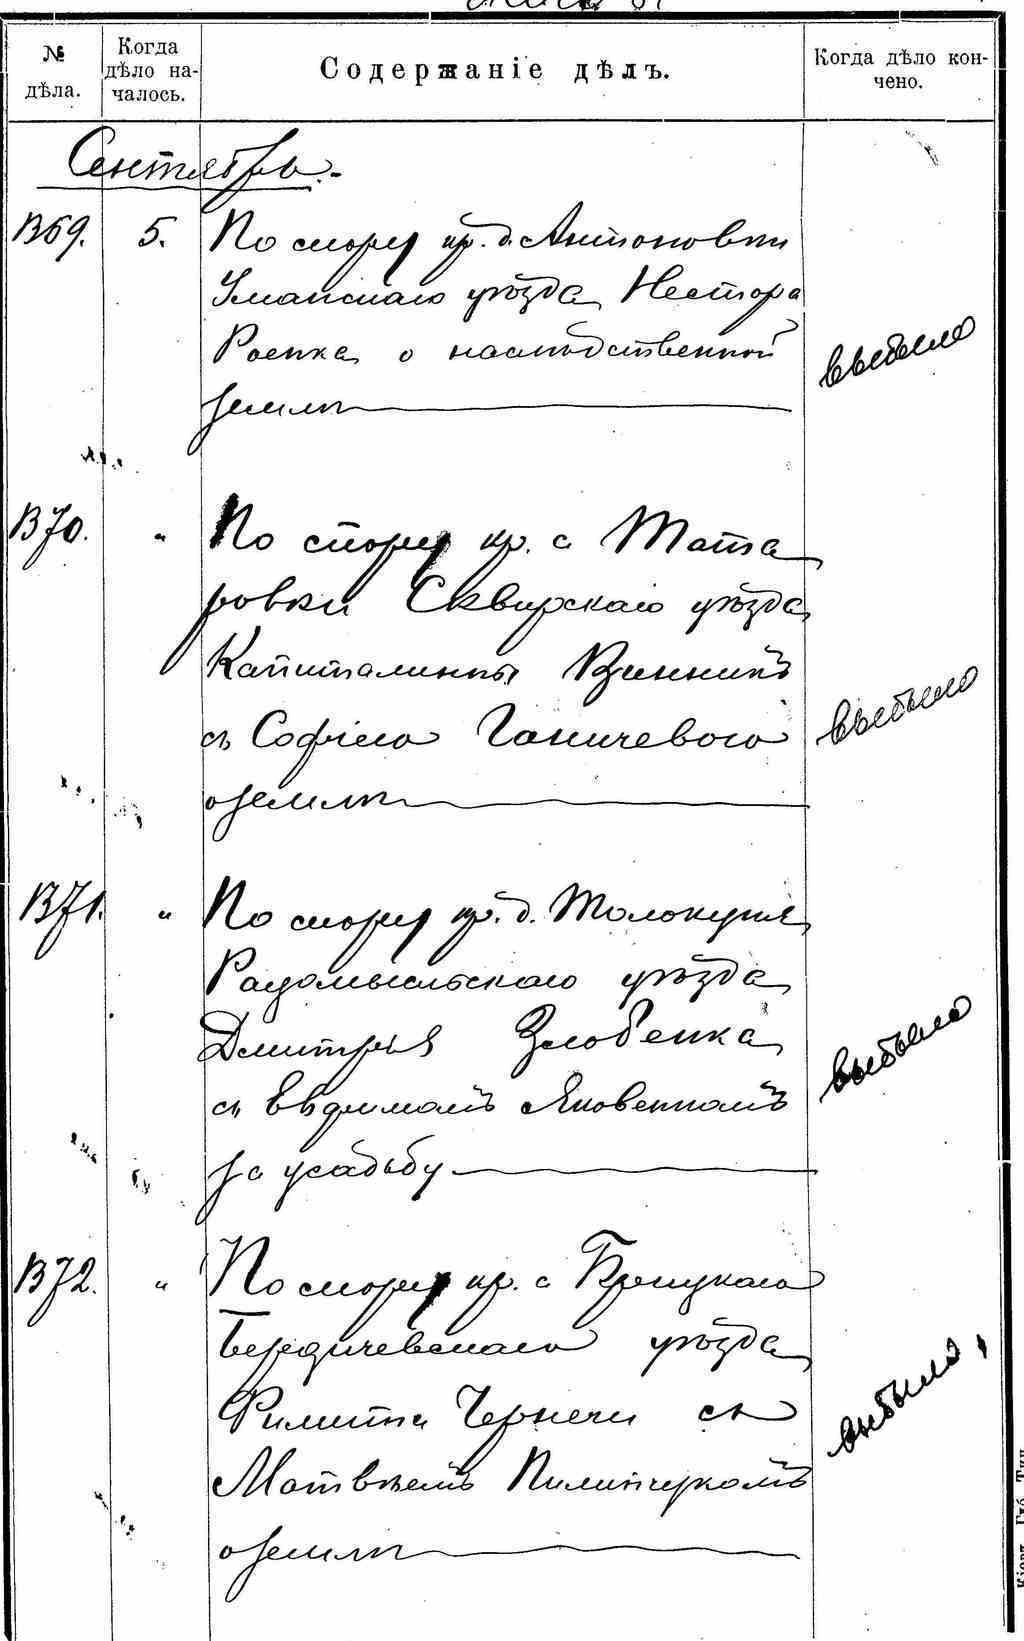 № дѣла.
Когда дѣло на-
чалось.
Содержаніе дѣлъ.
Когда дѣло кон-
чено.
Сентябрь.
1369. 5. По спору кр. д. Антоновки
Уманскаго уѣзда Нестора
Роенка о наслѣдственной
землѣ
выбыло
1370. " По спору кр. с Тата
ровки Сквирскаго уѣзда
Капиталины Винникъ
съ Софіею Ганичевою
о землѣ
выбыло
1371. " По спору кр. д. Толокуня
Радомысльскаго уѣзда
Дмитрія Злобенка
съ Евфимомъ Яковенкомъ
за усадьбу
выбыло
1372. " По спору кр. с
Бердичевскаго уѣзда
Филиппа Чернечи съ
Матвѣемъ Пилипчукомъ
о землѣ
выбыло